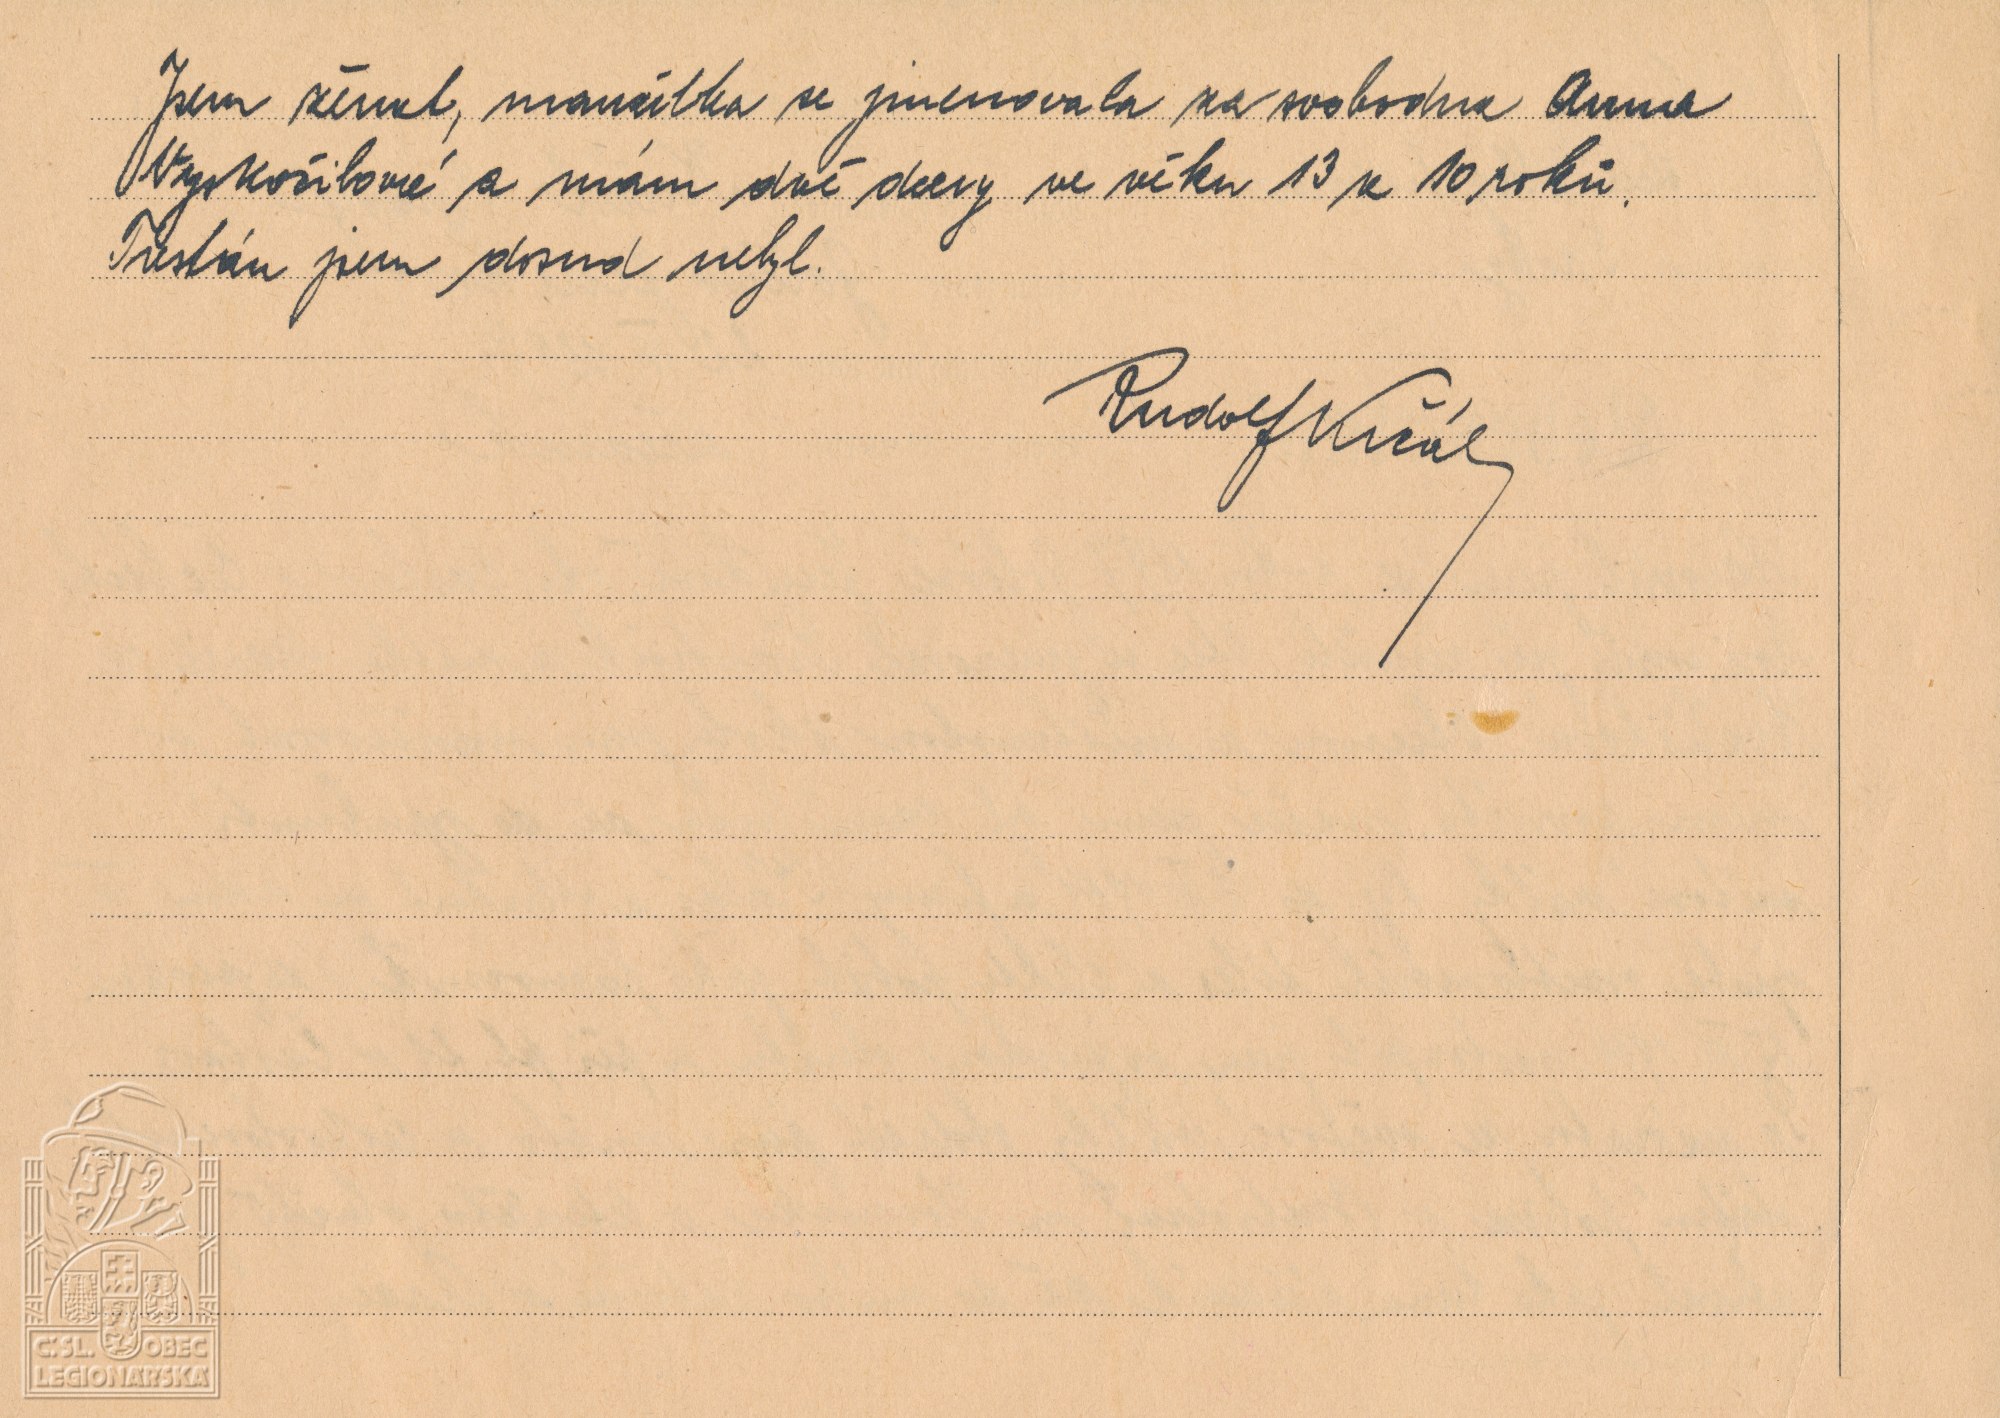 Jsem ženat, manželka se jmenovala za svobodna Anna
Vyskočilová a mám dvě dcery ve věku 13 a 10 roků.
Trestán jsem dosud nebyl.
Rudolf
Č.SL. OBEC
LEGIONÁŘSKÁ